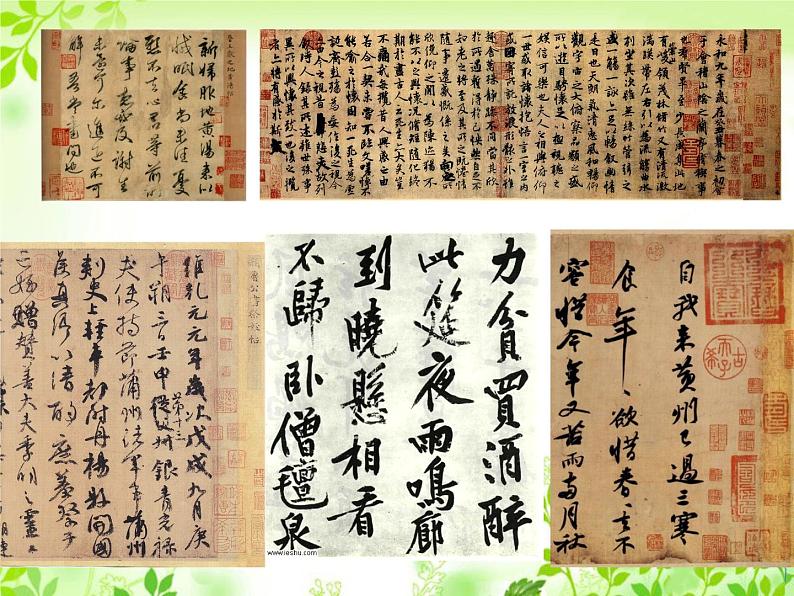 新婦服地黃湯来以
減眠食尚未佳憂
懸不去心君等前所
論事想必及謝生
未還可尔進退不可
解吾當書問也
永和九年歲在癸丑暮春之初會
于會稽山陰之蘭亭脩禊事
也羣賢畢至少長咸集此地
有崇山峻領茂林脩竹又有清流激
湍暎帶左右引以為流觴曲水
列坐其次雖無絲竹管弦之
盛一觴一詠亦足以暢敘幽情
是日也天朗氣清惠風和暢仰
觀宇宙之大俯察品類之盛
所以遊目騁懷足以極視聽之
娛信可樂也夫人之相與俯仰
一世或取諸懷抱悟言一室之內
或因寄所託放浪形骸之外雖
趣舍萬殊靜躁不同當其欣
於所遇蹔得於己怏然自足不
知老之將至及其所之既惓情
隨事遷感慨係之矣向之所
欣俛仰之閒以為陳迹猶不
能不以之興懷況脩短隨化終
期於盡古人云死生亦大矣豈
不痛哉每攬昔人興感之由
若合一契未嘗不臨文嗟悼不
能喻之於懷固知一死生為虛
誕齊彭殤為妄作後之視今
亦由今之視昔悲夫故列
敘時人錄其所述雖世殊事
異所以興懷其致一也後之攬
者亦將有感於斯
顏魯公書祭姪帖
維乾元元年歲次戊戌九月庚
午朔三日壬申第十三叔銀青光祿
夫使持節蒲州諸軍事蒲州
刺史上輕車都尉丹楊縣開國
侯真卿以清酌庶羞祭于
亡姪贈贊善大夫季明之靈曰
力貧買酒醉
此筵夜雨鳴廊
到曉懸相看
不歸臥僧氈泉
www.ieshu.com
自我来黃州已過三寒
食年〻欲惜春〻去不
容惜今年又苦雨兩月秋